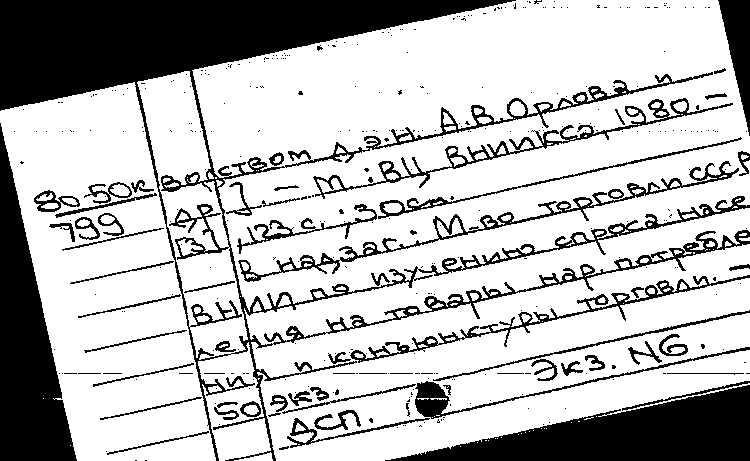 80-50к водством д.э.н. А.В.Орлова и
799 др]. - М : ВЦ ВНИИКСа, 1980. -
[3], 123 с. ; 30см.
В надзаг.: М-во торговли СССР
ВНИИ по изучению спроса насе
ления на товары нар. потребле
ния и конъюнктуры торговли. -
50 экз.
ДСП. Экз. №6.